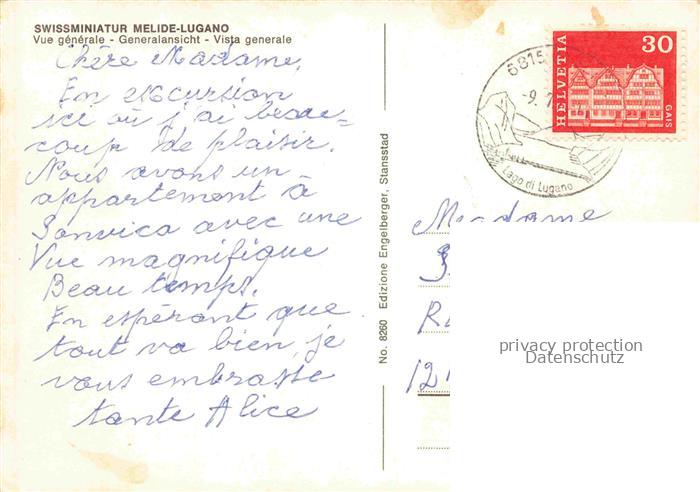 SWISSMINIATUR MELIDE-LUGANO
Vue générale - Generalansicht - Vista generale
Chère Madame,
En excursion
ici où j'ai beau-
coup de plaisir.
Nous avons un
appartement à
Sonvico avec une
Vue magnifique
Beau temps.
En espérant que
tout va bien, je
vous embrasse
tante Alice
No. 8260 Edizione Engelberger, Stansstad
6815
-9. 7
Lago di Lugano
HELVETIA
30
GAIS
Madame
12
privacy protection
Datenschutz